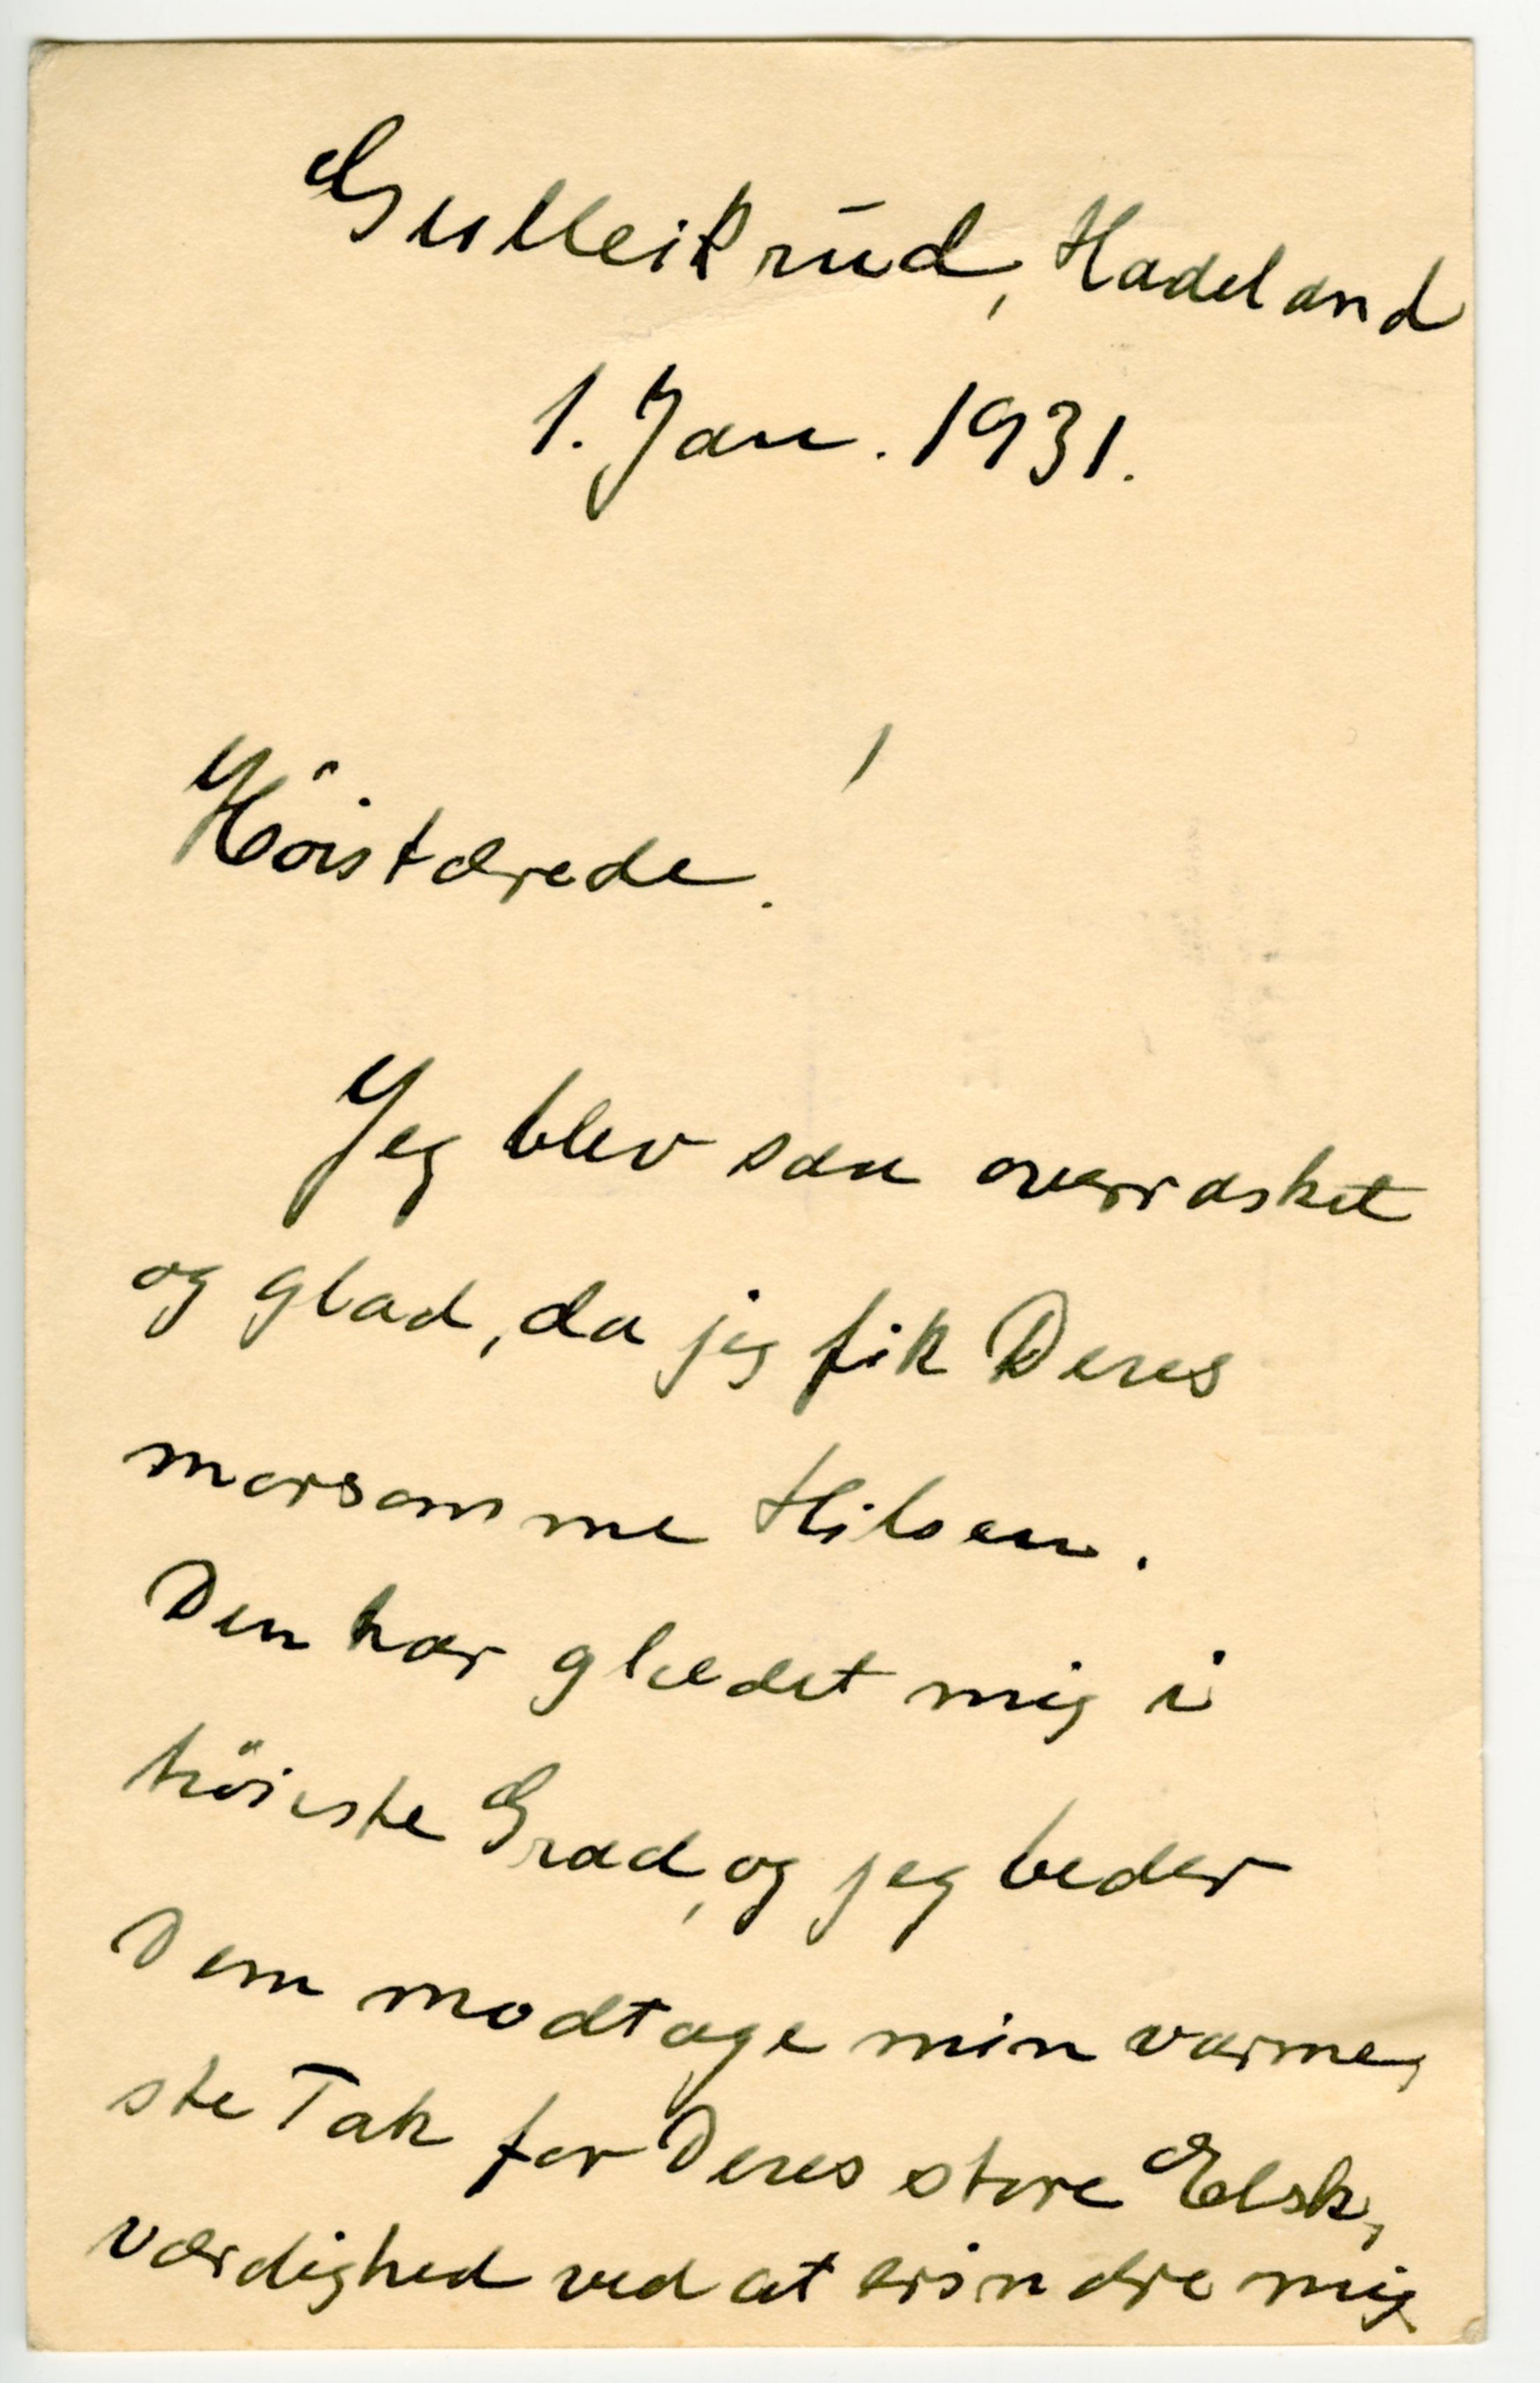 Gulleikrud, Hadeland
1. Jan. 1931.
Höistærede!
Jeg blev saa overrasket
og glad, da jeg fik Deres
morsomme Hilsen.
Den har glædet mig i
höieste Grad, og jeg beder
Dem modtage min varme-
ste Tak for Deres store Elsk-
værdighed ved at erindre mig